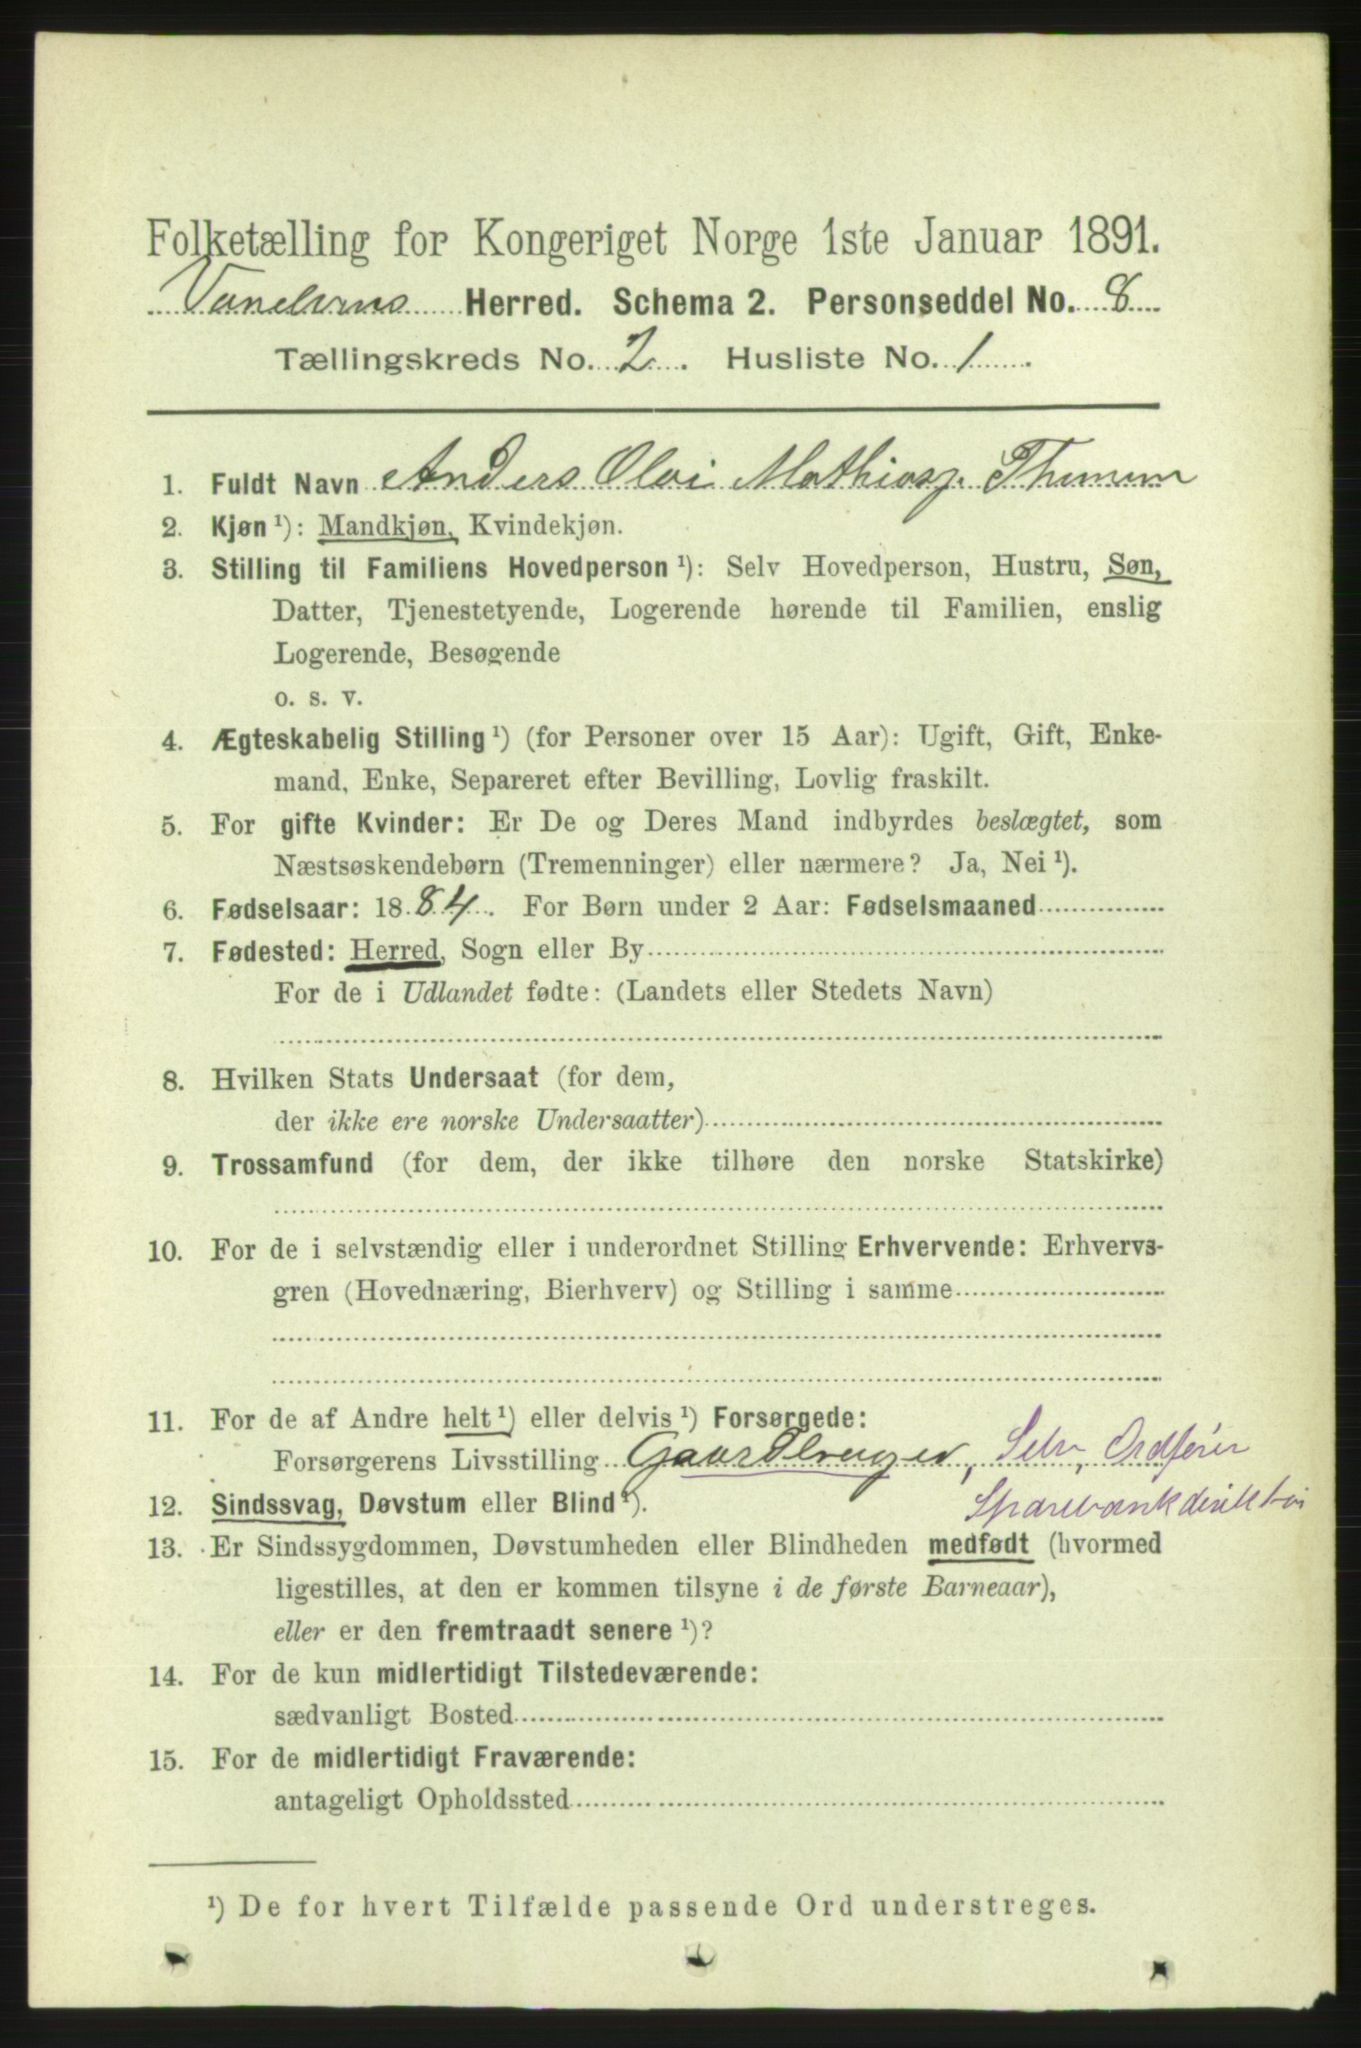 Folketælling for Kongeriget Norge 1ste Januar 1891.
Herred. Schema 2. Personseddel No. 8
Tællingskreds No. 2. Husliste No. 1
1. Fuldt Navn Anders Olai Mathiasz.
2. Kjøn ¹): Mandkjøn, Kvindekjøn.
3. Stilling til Familiens Hovedperson ¹): Selv Hovedperson, Hustru, Søn,
Datter, Tjenestetyende, Logerende hørende til Familien, enslig
Logerende, Besøgende
o. s. v.
4. Ægteskabelig Stilling ¹) (for Personer over 15 Aar): Ugift, Gift, Enke-
mand, Enke, Separeret efter Bevilling, Lovlig fraskilt.
5. For gifte Kvinder: Er De og Deres Mand indbyrdes beslægtet, som
Næstsøskendebørn (Tremenninger) eller nærmere? Ja, Nei ¹).
6. Fødselsaar: 1884. For Børn under 2 Aar: Fødselsmaaned
7. Fødested: Herred, Sogn eller By
For de i Udlandet fødte: (Landets eller Stedets Navn)
8. Hvilken Stats Undersaat (for dem,
der ikke ere norske Undersaatter)
9. Trossamfund (for dem, der ikke tilhøre den norske Statskirke)
10. For de i selvstændig eller i underordnet Stilling Erhvervende: Erhvervs-
gren (Hovednæring, Bierhverv) og Stilling i samme
11. For de af Andre helt ¹) eller delvis ¹) Forsørgede:
Forsørgerens Livsstilling Gaardbruger, Selv, Ordfører
Sparebankdirektør
12. Sindssvag, Døvstum eller Blind ¹).
13. Er Sindssygdommen, Døvstumheden eller Blindheden medfødt (hvormed
ligestilles, at den er kommen tilsyne i de første Barneaar),
eller er den fremtraadt senere ¹)?
14. For de kun midlertidigt Tilstedeværende:
sædvanligt Bosted
15. For de midlertidigt Fraværende:
antageligt Opholdssted
¹) De for hvert Tilfælde passende Ord understreges.